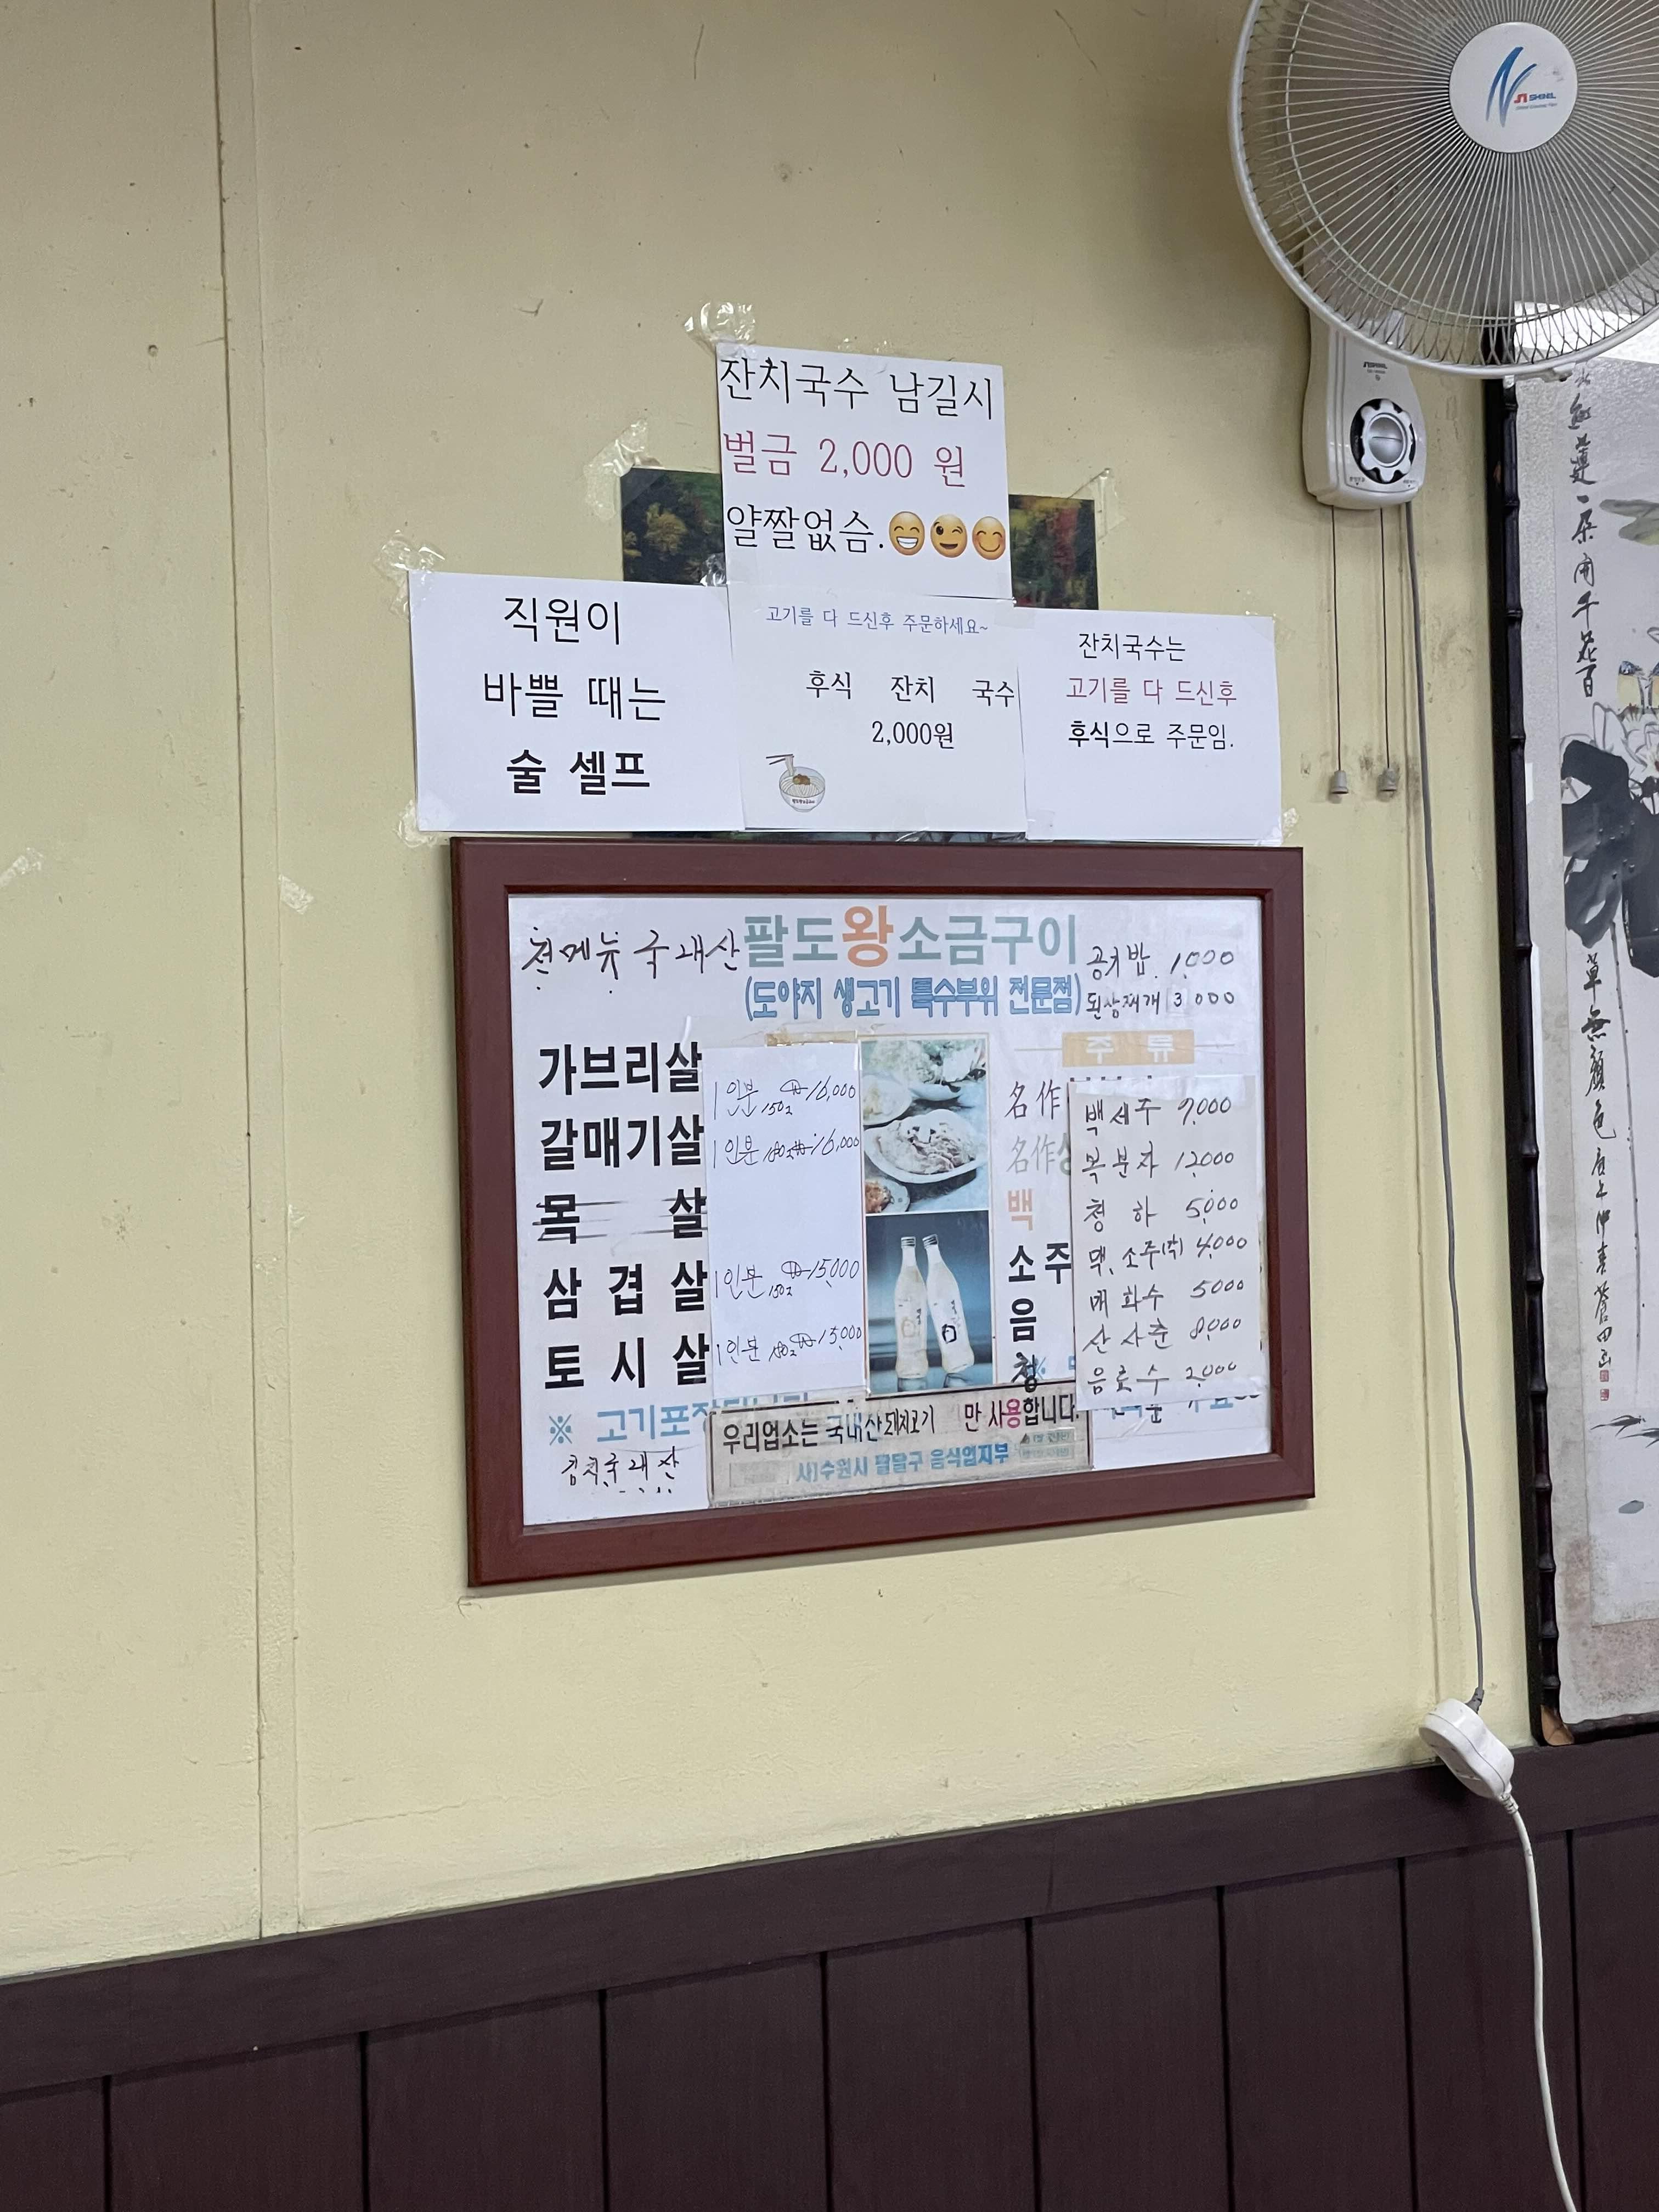 잔치국수 남길시
벌금 2,000 원
얄짤없슴.😁😉😊
직원이
바쁠 때는
술 셀프
고기를 다 드신후 주문하세요~
후식 잔치 국수
2,000원
잔치국수는
고기를 다 드신후
후식으로 주문임.
전메뉴 국내산
팔도왕소금구이
(도야지 생고기 특수부위 전문점)
공기밥 1,000
된장찌개 3,000
가브리살 1인분 150g ₩16,000
갈매기살 1인분 180g ₩16,000
목 살
삼 겹 살 1인분 150g ₩15,000
토 시 살 1인분 180g ₩15,000
주 류
名作
名作
백
소주
음
청
백세주 9,000
복분자 12,000
청 하 5,000
맥.소주 4,000
매화수 5000
산사춘 8,000
음료수 2,000
※ 고기포장
김치국내산
우리업소는 국내산돼지고기 만 사용합니다.
사)수원시 팔달구 음식업지부
SHINIL
草無顔色